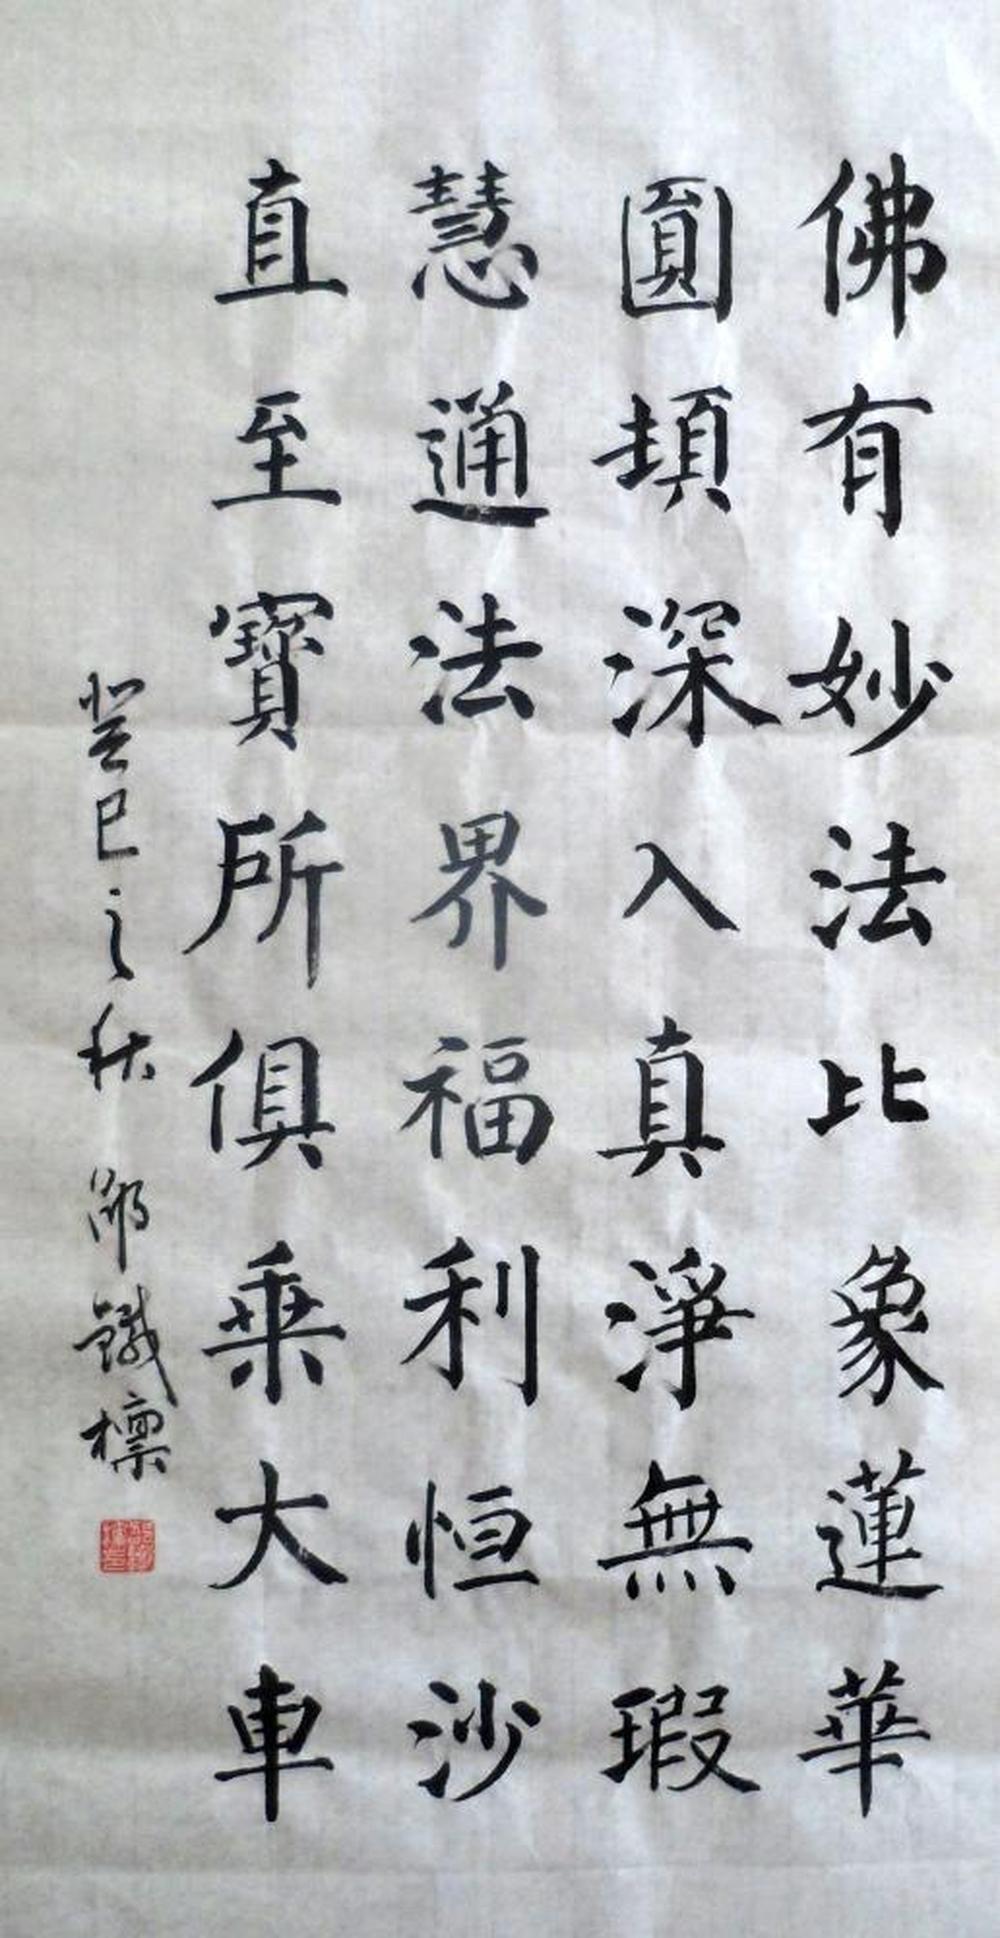 佛有妙法比象蓮華
圓頓深入真淨無瑕
慧通法界福利恒沙
直至寶所俱乘大車
癸巳之秋 邵鐵標